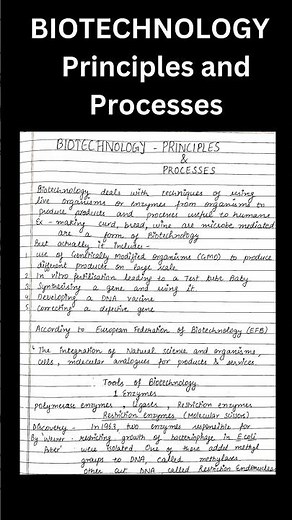 BIOTECHNOLOGY
Principles and
Processes
BIOTECHNOLOGY - PRINCIPLES
&
PROCESSES
Biotechnology deals with techniques of using
live organisms or enzymes from organisms to
produce products and processes useful to humans
Ex - making curd, bread, wine are microbe mediated
are a form of Biotechnology
But actually it include -
1 use of Genetically Modified Organisms (GMO) to produce
different products on large scale.
2 In vitro fertilisation leading to a Test tube Baby
3 Synthesising a gene and using it
4 Developing a DNA vaccine
5 Correcting a defective gene
According to European Federation of Biotechnology (EFB)
" The integration of Natural science and organisms,
cells, molecular analogues for products & services.
Tools of Biotechnology
1 Enzymes
polymerase enzymes, Ligases, Restriction enzymes
Restriction enzymes (Molecular scissors)
Discovery - In 1963, two enzymes responsible for
By restricting growth of bacteriophage in E.coli
were isolated. One of these added methyl
groups to DNA, called methylases
other cut DNA, called Restriction Endonuclease